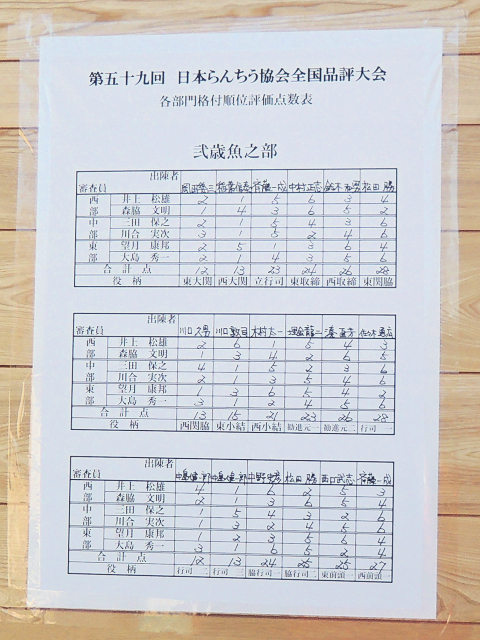 第五十九回 日本らんちう協会全国品評大会
各部門格付順位評価点数表
弐歳魚之部
出陳者
審査員 中村正志 松田 勝
西 井上 松雄 2 1 5 6 3 4
部 森脇 文明 1 4 3 6 5 2
中 三田 保之 2 1 5 4 3 6
部 川合 実次 3 1 5 2 4 6
東 望月 康邦 2 5 1 3 6 4
部 大島 秀一 2 1 4 3 5 6
合計点 12 13 23 24 26 28
役柄 東大関 西大関 立行司 東取締 西取締 東関脇
出陳者
審査員 川口 木村
西 井上 松雄 2 6 1 5 4 3
部 森脇 文明 1 3 4 2 6 5
中 三田 保之 4 1 5 2 3 6
部 川合 実次 2 1 3 5 4 6
東 望月 康邦 1 3 6 5 4 2
部 大島 秀一 3 1 2 4 5 6
合計点 13 15 21 23 26 28
役柄 西関脇 東小結 西小結 勧進元一 勧進元二 行司一
出陳者
審査員 松田 勝 西口武志
西 井上 松雄 4 1 6 2 5 3
部 森脇 文明 2 1 3 6 5 4
中 三田 保之 1 5 4 3 2 6
部 川合 実次 1 3 2 4 5 6
東 望月 康邦 1 2 3 5 6 4
部 大島 秀一 3 1 6 5 2 4
合計点 12 13 24 25 25 27
役柄 行司二 行司三 脇行司一 脇行司二 東前頭一 西前頭一